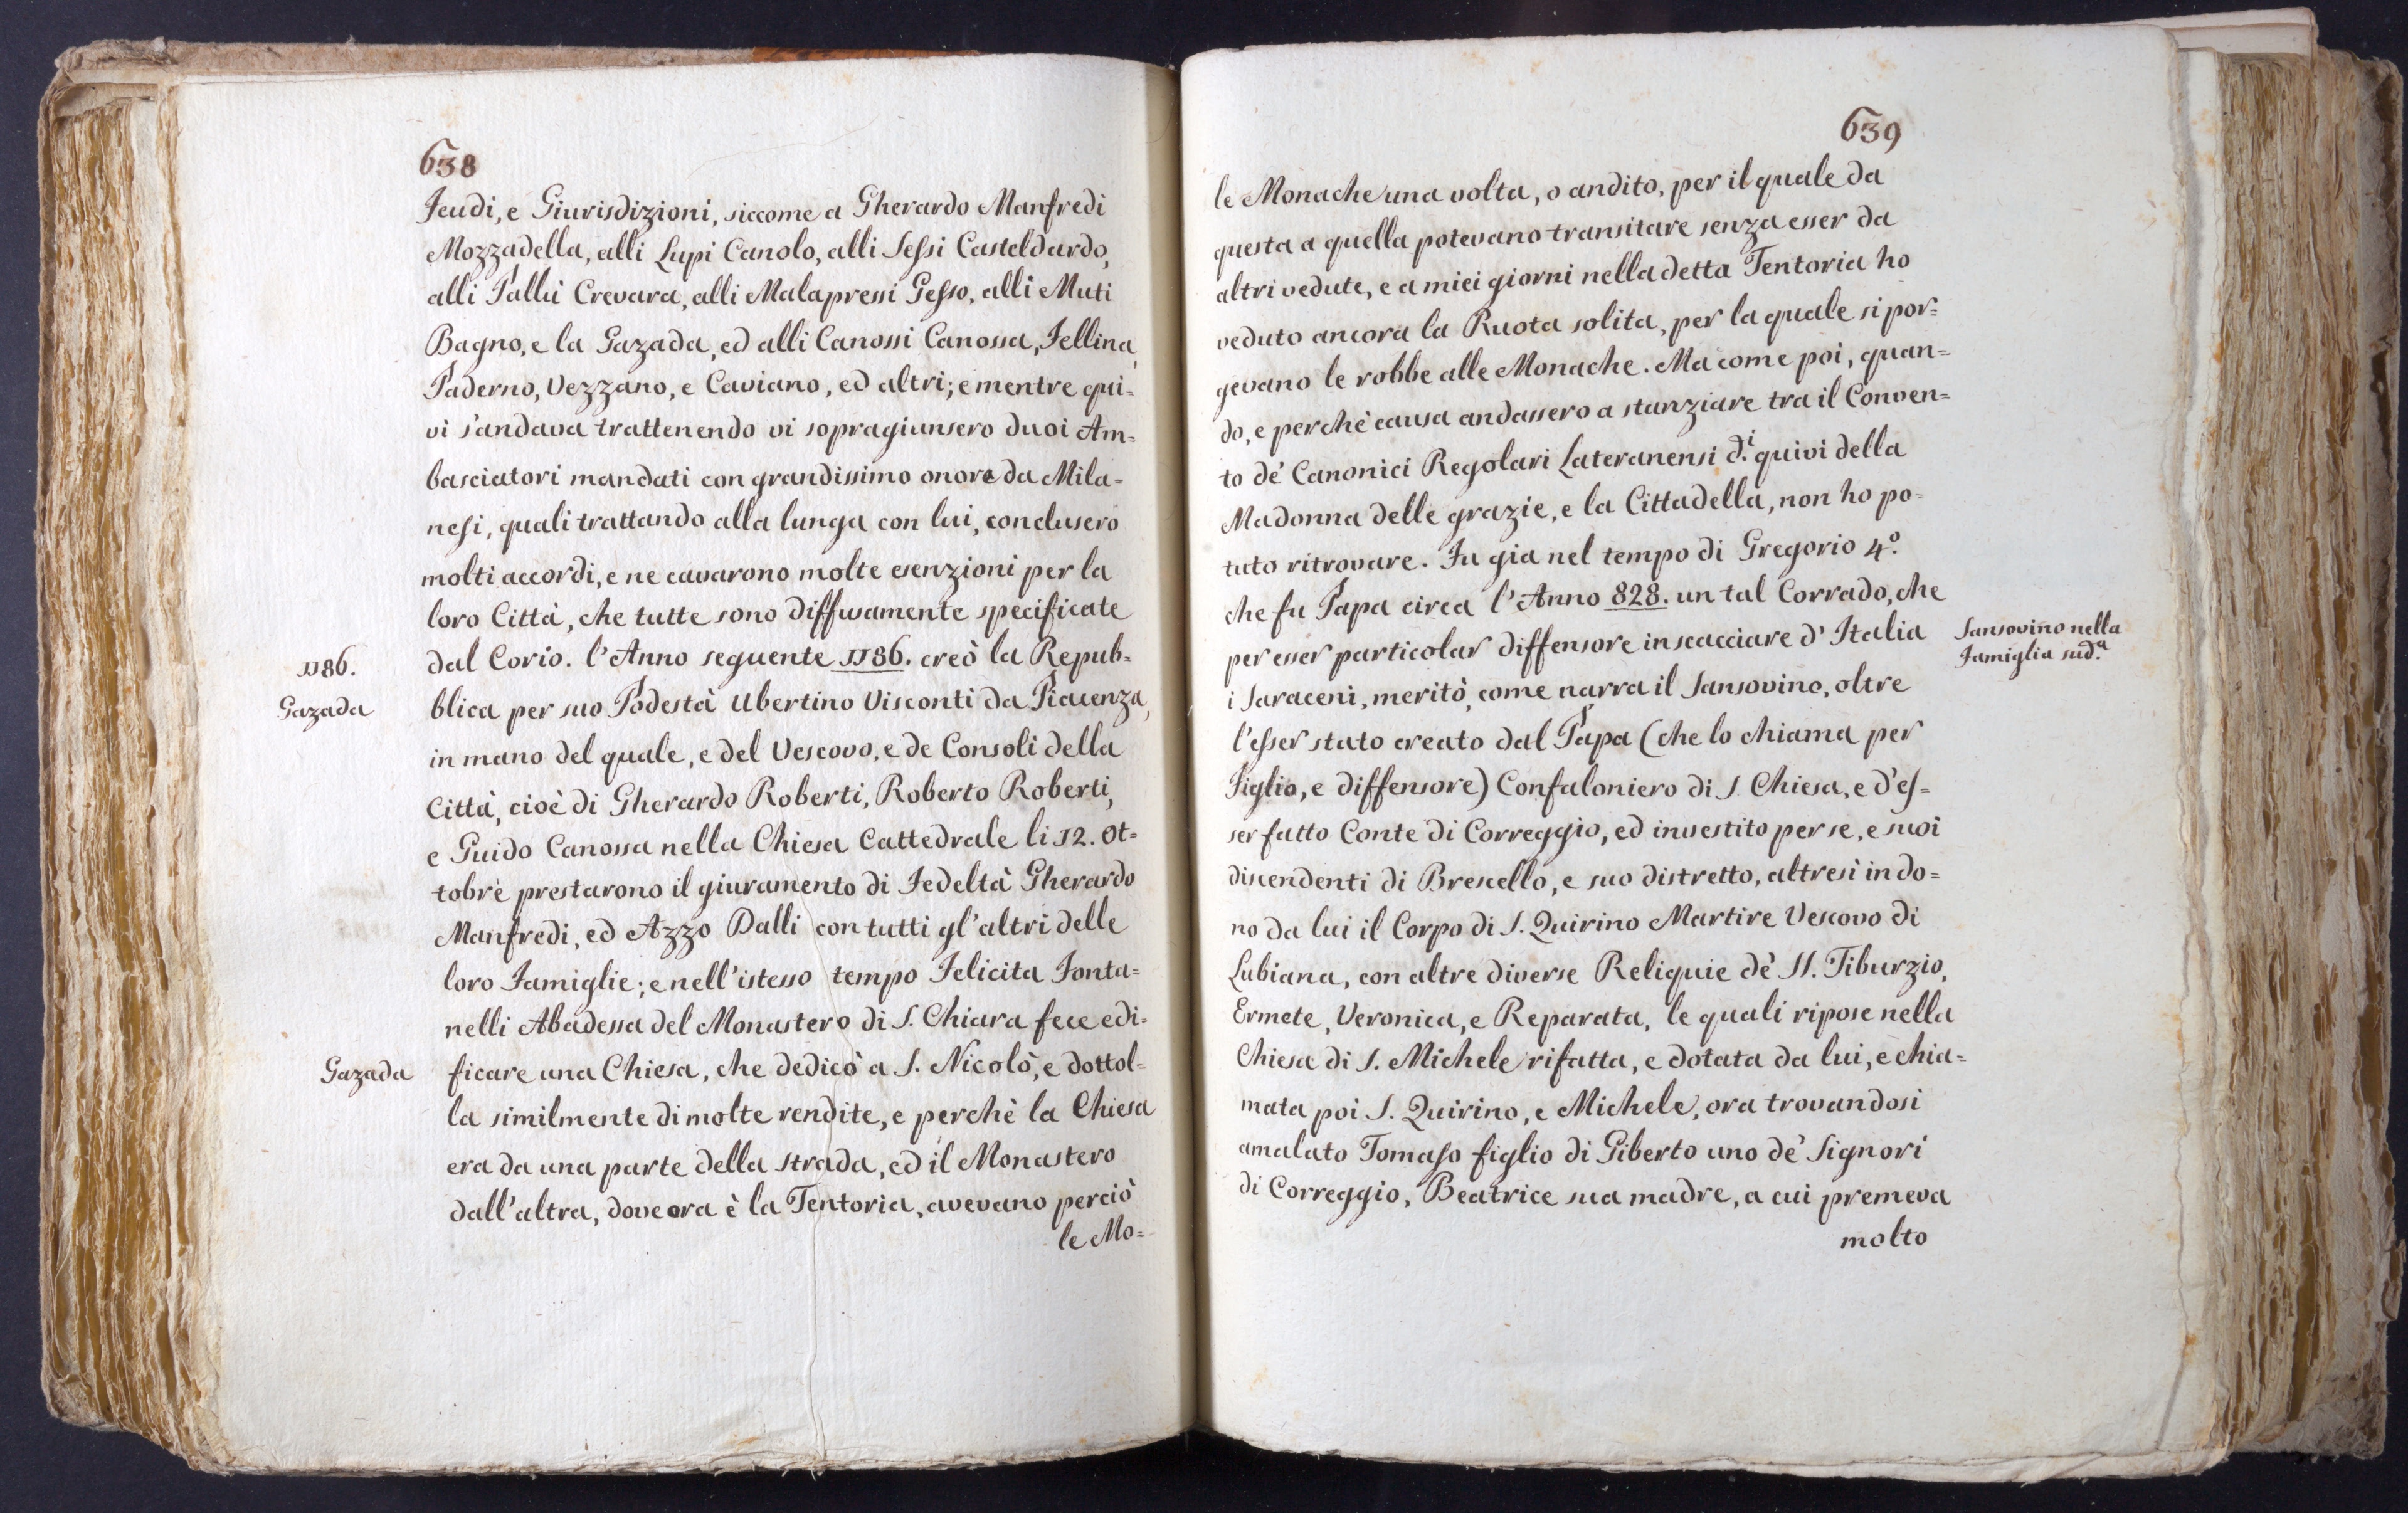 638
Feudi, e Giurisdizioni, siccome a Gherardo Manfredi
Mozzadella, alli Lupi Canolo, alli Sessi Casteldardo,
alli Pallù Crevara, alli Malapressi Gesso, alli Muti
Bagno, e la Gazada, ed alli Canossi Canossa, Fellina,
Paderno, Vezzano, e Caviano, ed altri; e mentre qui=
vi s'andava trattenendo vi sopragiunsero duoi Am=
basciatori mandati con grandissimo onore da Mila=
nesi, quali trattando alla lunga con lui, conclusero
molti accordi, e ne cavarono molte esenzioni per la
loro Città, che tutte sono diffusamente specificate
1186.
dal Corio. l'Anno seguente 1186. creò la Repub=
Gazada
blica per suo Podestà Ubertino Visconti da Piacenza,
in mano del quale, e del Vescovo, e de Consoli della
Città, cioè di Gherardo Roberti, Roberto Roberti,
e Guido Canossa nella Chiesa Cattedrale li 12. Ot=
tobre prestarono il giuramento di Fedeltà Gherardo
Manfredi, ed Azzo Dalli con tutti gl'altri delle
loro Famiglie; e nell'istesso tempo Felicita Fonta=
nelli Abadessa del Monastero di S. Chiara fece edi=
Gazada
ficare una Chiesa, che dedicò a S. Nicolò, e dottol=
la similmente di molte rendite, e perchè la Chiesa
era da una parte della strada, ed il Monastero
dall'altra, dove ora è la Tentoria, avevano perciò
le Mo=
639
le Monache una volta, o andito, per il quale da
questa a quella potevano transitare senza esser da
altri vedute, e a miei giorni nella detta Tentoria ho
veduto ancora la Ruota solita, per la quale si por=
gevano le robbe alle Monache. Ma come poi, quan=
do, e perchè causa andassero a stanziare tra il Conven=
to de' Canonici Regolari Lateranensi d.i quivi della
Madonna delle grazie, e la Cittadella, non ho po=
tuto ritrovare. Fu gia nel tempo di Gregorio 4.º
che fu Papa circa l'Anno 828. un tal Corrado, che
per esser particolar diffensore in scacciare d'Italia
Sansovino nella
Famiglia sud.a
i Saraceni, meritò, come narra il Sansovino, oltre
l'esser stato creato dal Papa (che lo chiama per
Figlio, e diffensore) Confaloniero di S. Chiesa, e d'es=
ser fatto Conte di Correggio, ed investito per se, e suoi
discendenti di Brescello, e suo distretto, altresì in do=
no da lui il Corpo di S. Quirino Martire Vescovo di
Lubiana, con altre diverse Reliquie de' SS. Tiburzio,
Ermete, Veronica, e Reparata, le quali ripose nella
Chiesa di S. Michele rifatta, e dotata da lui, e chia=
mata poi S. Quirino, e Michele, ora trovandosi
amalato Tomaso figlio di Giberto uno de' Signori
di Correggio, Beatrice sua madre, a cui premeva
molto